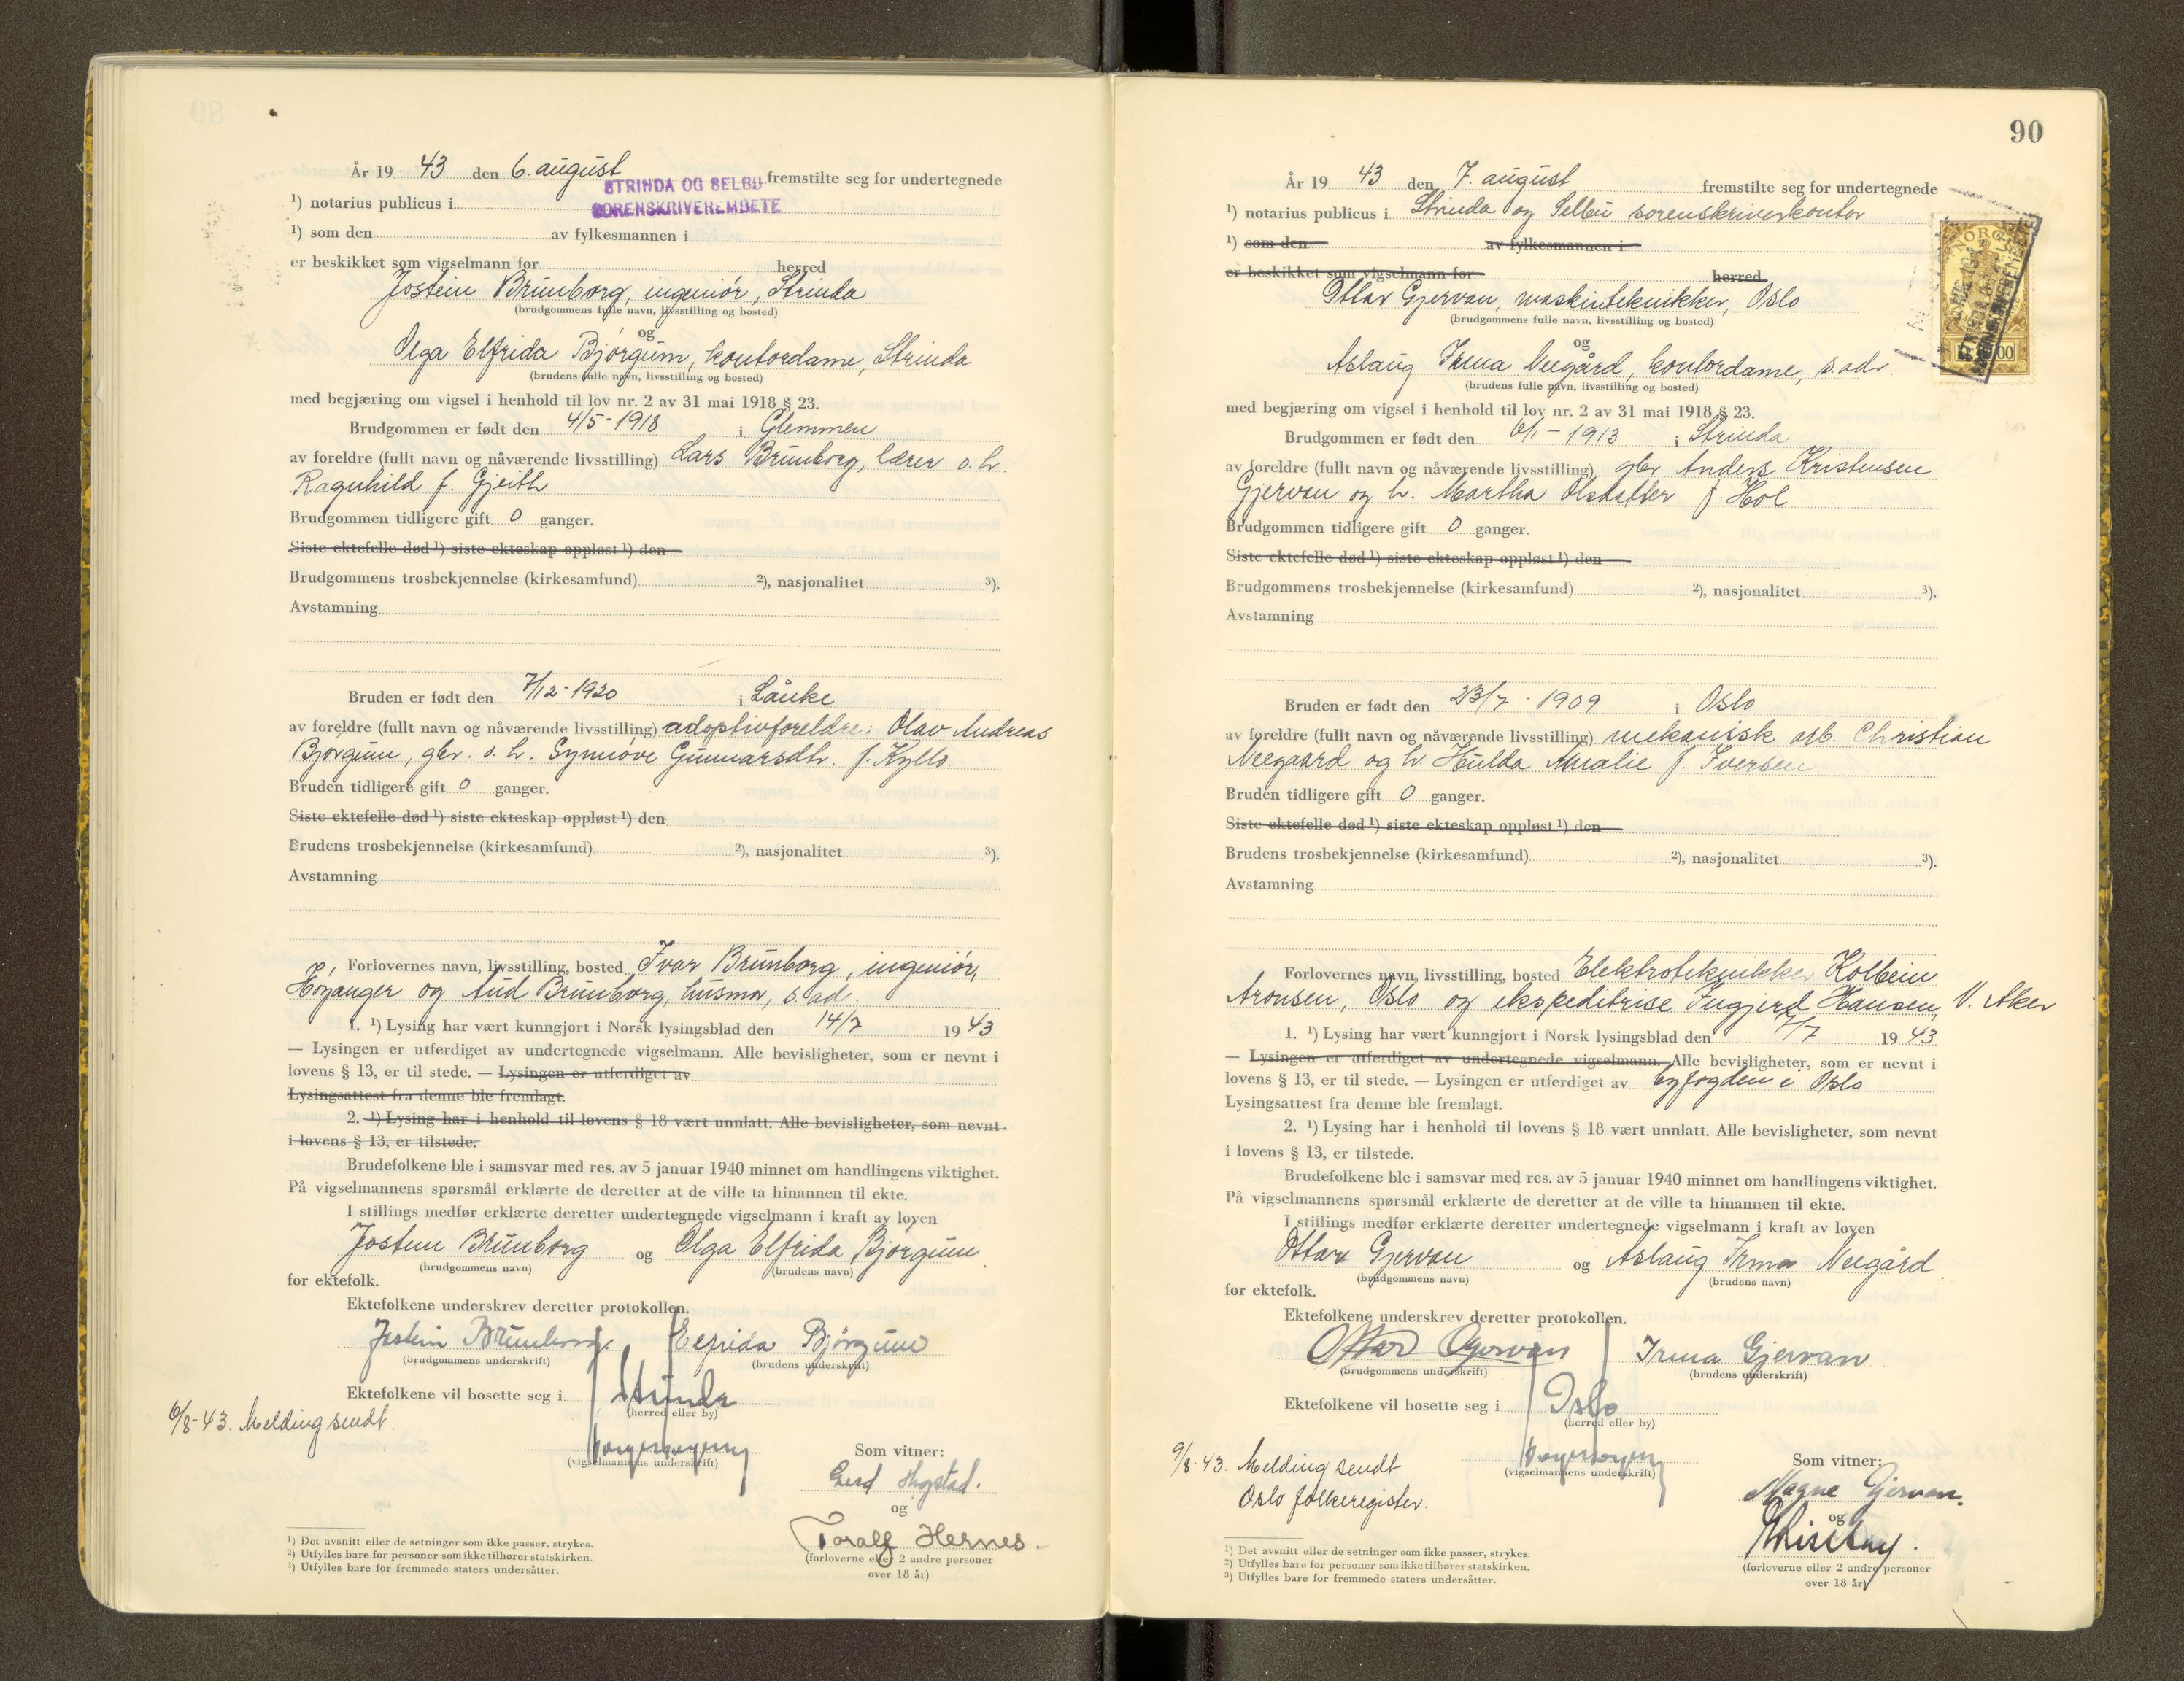 År 19 43 den 6. august fremstilte seg for undertegnede
STRINDA OG SELBU
SORENSKRIVEREMBETE
¹) notarius publicus i
¹) som den av fylkesmannen i
er beskikket som vigselmann for herred
Jostein Brunborg, ingeniør, Strinda
(brudgommens fulle navn, livsstilling og bosted)
og
Olga Elfrida Bjørgum, kontordame, Strinda
(brudens fulle navn, livsstilling og bosted)
med begjæring om vigsel i henhold til lov nr. 2 av 31 mai 1918 § 23.
Brudgommen er født den 4/5-1918 i Glemmen
av foreldre (fullt navn og nåværende livsstilling) Lars Brunborg, lærer o. h.
Ragnhild f. Gjeith
Brudgommen tidligere gift 0 ganger.
Siste ektefelle død ¹) siste ekteskap oppløst ¹) den
Brudgommens trosbekjennelse (kirkesamfund) ²), nasjonalitet ³).
Avstamning
Bruden er født den 7/12-1920 i Lånke
av foreldre (fullt navn og nåværende livsstilling) adoptivforeldre: Olav Andreas
Bjørgum, gbr. o. h. Synnøve Gunnarsdtr. f. Kyllo.
Bruden tidligere gift 0 ganger.
Siste ektefelle død ¹) siste ekteskap oppløst ¹) den
Brudens trosbekjennelse (kirkesamfund) ²), nasjonalitet ³).
Avstamning
Forlovernes navn, livsstilling, bosted Ivar Brunborg, ingeniør,
Høyanger og Aud Brunborg, husmor, s. ad.
1. ¹) Lysing har vært kunngjort i Norsk lysingsblad den 14/7 19 43
— Lysingen er utferdiget av undertegnede vigselmann. Alle bevisligheter, som er nevnt i
lovens § 13, er til stede. — Lysingen er utferdiget av
Lysingsattest fra denne ble fremlagt.
2. ¹) Lysing har i henhold til lovens § 18 vært unnlatt. Alle bevisligheter, som nevnt
i lovens § 13, er tilstede.
Brudefolkene ble i samsvar med res. av 5 januar 1940 minnet om handlingens viktighet.
På vigselmannens spørsmål erklærte de deretter at de ville ta hinannen til ekte.
I stillings medfør erklærte deretter undertegnede vigselmann i kraft av loven
Jostein Brunborg og Olga Elfrida Bjørgum
(brudgommens navn) (brudens navn)
for ektefolk.
Ektefolkene underskrev deretter protokollen.
Jostein Brunborg. Elfrida Bjørgum
(brudgommens underskrift) (brudens underskrift)
Ektefolkene vil bosette seg i Strinda
(herred eller by)
6/8-43. Melding sendt.
(vigselmannens underskrift)
Som vitner:
Gerd
og
Toralf Hernes.
(forloverne eller 2 andre personer
over 18 år)
¹) Det avsnitt eller de setninger som ikke passer, strykes.
²) Utfylles bare for personer som ikke tilhører statskirken.
³) Utfylles bare for fremmede staters undersåtter.
90
År 19 43 den 7. august fremstilte seg for undertegnede
¹) notarius publicus i Strinda og Selbu sorenskriverkontor
¹) som den av fylkesmannen i
er beskikket som vigselmann for herred
NORGE
Ottar Gjervan, maskintekniker, Oslo
(brudgommens fulle navn, livsstilling og bosted)
og
Aslaug Irma Neegård, kontordame, s adr.
(brudens fulle navn, livsstilling og bosted)
med begjæring om vigsel i henhold til lov nr. 2 av 31 mai 1918 § 23.
Brudgommen er født den 6/1-1913 i Strinda
av foreldre (fullt navn og nåværende livsstilling) gbr Anders Kristensen
Gjervan og h. Martha Olsdatter f. Hol
Brudgommen tidligere gift 0 ganger.
Siste ektefelle død ¹) siste ekteskap oppløst ¹) den
Brudgommens trosbekjennelse (kirkesamfund) ²), nasjonalitet ³).
Avstamning
Bruden er født den 23/7-1909 i Oslo
av foreldre (fullt navn og nåværende livsstilling) mekanisk arb. Christian
Neegaard og h. Hulda Amalie f. Iversen
Bruden tidligere gift 0 ganger.
Siste ektefelle død ¹) siste ekteskap oppløst ¹) den
Brudens trosbekjennelse (kirkesamfund) ²), nasjonalitet ³).
Avstamning
Forlovernes navn, livsstilling, bosted Elektrotekniker Kolbein
Aronsen, Oslo og ekspeditrise Ingjerd Hansen, V. Aker
1. ¹) Lysing har vært kunngjort i Norsk lysingsblad den 7/7 19 43
— Lysingen er utferdiget av undertegnede vigselmann. Alle bevisligheter, som er nevnt i
lovens § 13, er til stede. — Lysingen er utferdiget av byfogden i Oslo
Lysingsattest fra denne ble fremlagt.
2. ¹) Lysing har i henhold til lovens § 18 vært unnlatt. Alle bevisligheter, som nevnt
i lovens § 13, er tilstede.
Brudefolkene ble i samsvar med res. av 5 januar 1940 minnet om handlingens viktighet.
På vigselmannens spørsmål erklærte de deretter at de ville ta hinannen til ekte.
I stillings medfør erklærte deretter undertegnede vigselmann i kraft av loven
Ottar Gjervan og Aslaug Irma Neegård.
(brudgommens navn) (brudens navn)
for ektefolk.
Ektefolkene underskrev deretter protokollen.
Ottar Gjervan Irma Gjervan
(brudgommens underskrift) (brudens underskrift)
Ektefolkene vil bosette seg i Oslo
(herred eller by)
9/8-43. Melding sendt
Oslo folkeregister.
(vigselmannens underskrift)
Som vitner:
Magne Gjervan.
og
(forloverne eller 2 andre personer
over 18 år)
¹) Det avsnitt eller de setninger som ikke passer, strykes.
²) Utfylles bare for personer som ikke tilhører statskirken.
³) Utfylles bare for fremmede staters undersåtter.